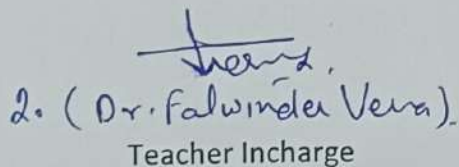 2. (Dr. Falwinder Verma).
Teacher Incharge